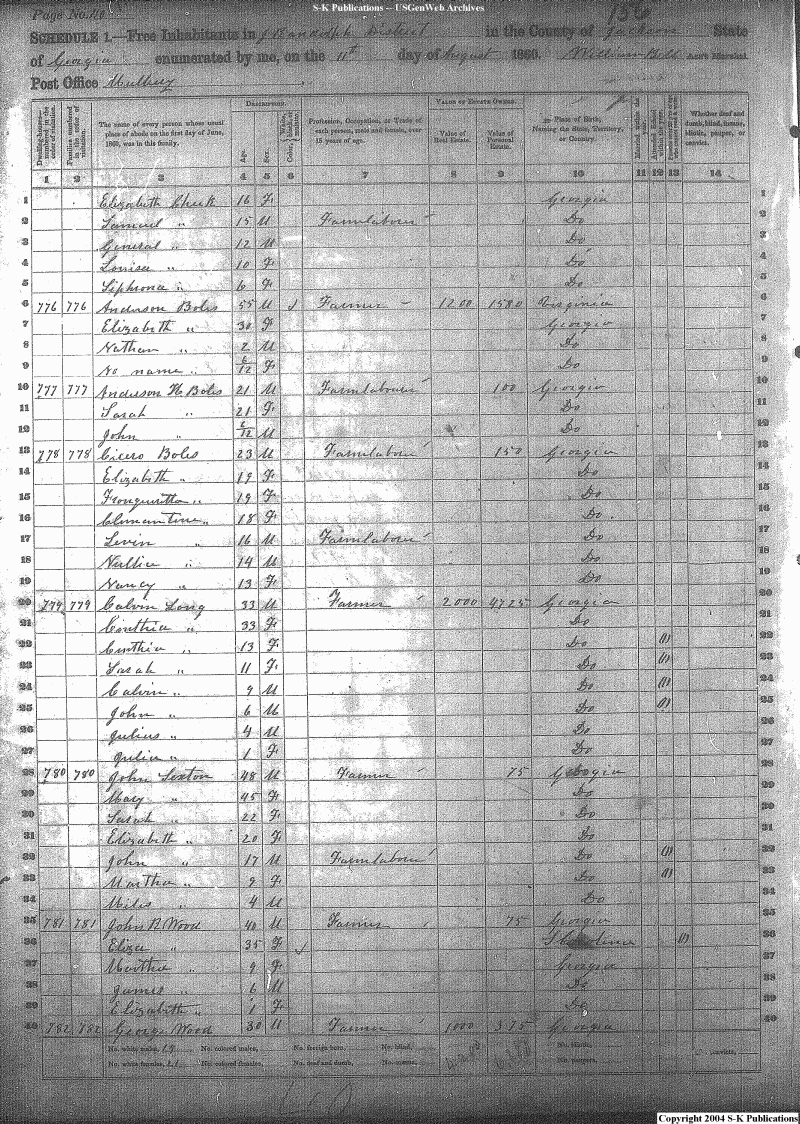 S-K Publications -- USGenWeb Archives
Page No. 110
156
SCHEDULE 1.—Free Inhabitants in Randolph District in the County of Jackson State
of Georgia enumerated by me, on the 11th day of August 1860. William Bell Ass't Marshal.
Post Office Mulbery
DESCRIPTION. VALUE OF ESTATE OWNED.
Dwelling-houses—numbered in the order of visitation. Families numbered in the order of visitation. The name of every person whose usual place of abode on the first day of June, 1860, was in this family. Age. Sex. Color, White, black, or mulatto. Profession, Occupation, or Trade of each person, male and female, over 15 years of age. Value of Real Estate. Value of Personal Estate. Place of Birth, Naming the State, Territory, or Country. Married within the year. Attended School within the year. Whether deaf and dumb, blind, insane, idiotic, pauper, or convict.
1 2 3 4 5 6 7 8 9 10 11 12 13 14
1 Elizabeth Cheek 16 F Georgia 1
2 Samuel " 15 M Farmlabourer Do 2
3 General " 12 M Do 3
4 Louisa " 10 F Do 4
5 Sephrona " 6 F Do 5
6 776 776 Anderson Boles 55 M Farmer 1200 1580 Virginia 6
7 Elizabeth " 30 F Georgia 7
8 Nathan " 2 M Do 8
9 No name " 6/12 F Do 9
10 777 777 Anderson H Boles 21 M Farmlabourer 100 Georgia 10
11 Sarah " 21 F Do 11
12 John " 6/12 M Do 12
13 778 778 Cicero Boles 23 M Farmlabourer 150 Georgia 13
14 Elizabeth " 19 F Do 14
15 " 19 F Do 15
16 Clemantine " 18 F Do 16
17 Levin " 16 M Farmlabourer Do 17
18 " 14 M Do 18
19 Nancy " 13 F Do 19
20 779 779 Calvin Long 33 M Farmer 2000 4725 Georgia 20
21 Cinthia " 33 F Do 21
22 Cinthia " 13 F Do (1) 22
23 Sarah " 11 F Do (1) 23
24 Calvin " 9 M Do (1) 24
25 John " 6 M Do (1) 25
26 Julius " 4 M Do 26
27 Julia " 1 F Do 27
28 780 780 John Sexton 48 M Farmer 75 Georgia 28
29 Mary " 45 F Do 29
30 Sarah " 22 F Do 30
31 Elizabeth " 20 F Do 31
32 John " 17 M Farmlabourer Do (1) 32
33 Martha " 9 F Do (1) 33
34 Miles " 4 M Do 34
35 781 781 John R Wood 40 M Farmer 75 Georgia 35
36 Eliza " 35 F S Carolina (1) 36
37 Martha " 9 F Georgia 37
38 James " 6 M Do 38
39 Elizabeth " 1 F Do 39
40 782 782 George Wood 30 M Farmer 1000 375 Georgia 40
No. white males, 19 No. colored males, No. foreign born, No. blind, No. idiotic,
No. white females, 21 No. colored females, No. deaf and dumb, No. insane, No. paupers, No. convicts,
Copyright 2004 S-K Publications